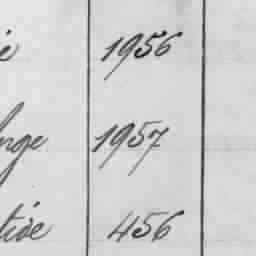 ie 1956
nge 1957
tive 456